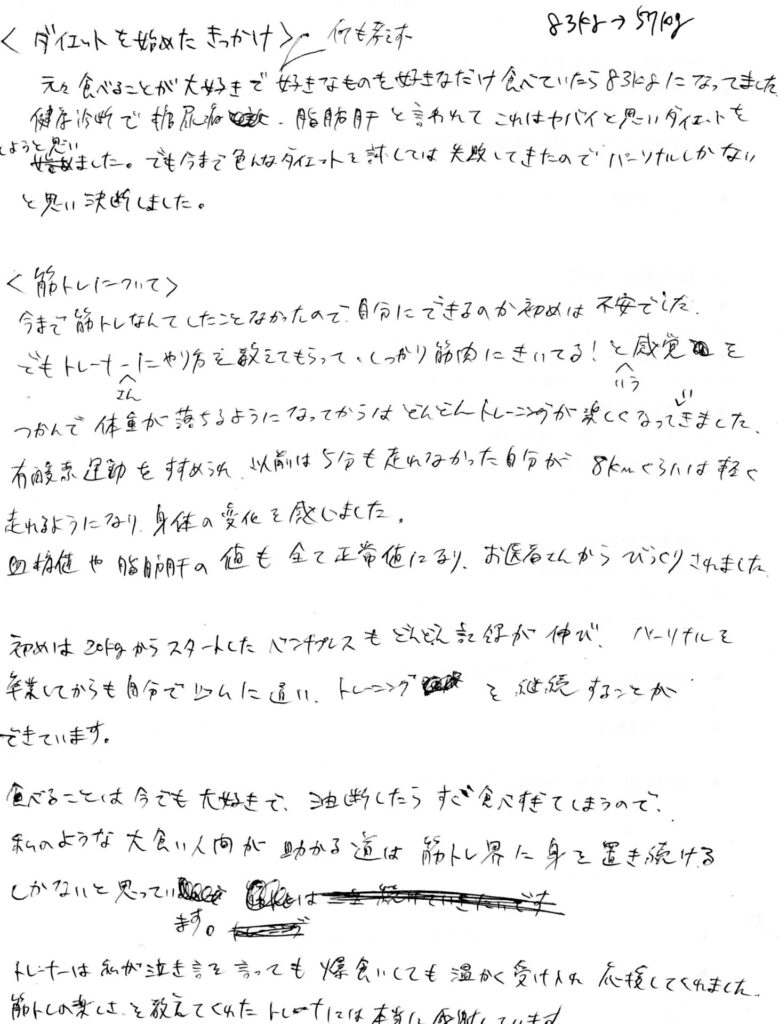 83kg→57kg
<ダイエットを始めたきっかけ> 何も考えず
元々食べることが大好きで好きなものを好きなだけ食べていたら83kgになってました
健康診断で糖尿病、脂肪肝と言われてこれはヤバイと思いダイエットを
しようと思い
始めました。でも今まで色んなダイエットを試しては失敗してきたのでパーソナルしかない
と思い決断しました。
<筋トレについて>
今まで筋トレなんてしたことなかったので、自分にできるのか初めは不安でした。
でもトレーナーさんにやり方を教えてもらって、しっかり筋肉にきいてる!という感覚を
つかんで体重が落ちるようになってからはどんどんトレーニングが楽しくなっていきました。
有酸素運動をすすめられ、以前は5分も走れなかった自分が8kmぐらいは軽く
走れるようになり、身体の変化を感じました。
血糖値や脂肪肝の値も全て正常値になり、お医者さんからびっくりされました
初めは20kgからスタートしたベンチプレスもどんどん記録が伸び、パーソナルを
卒業してからも自分でジムに通い、トレーニングを継続することが
できています。
食べることは今でも大好きで、油断したらすぐ食べすぎてしまうので、
私のような大食い人間が助かる道は筋トレ界に身を置き続ける
しかないと思ってい
ます。
トレーナーは私が泣き言を言っても爆食いしても温かく受け入れ応援してくれました。
筋トレの楽しさを教えてくれたトレーナーには本当に感謝しています